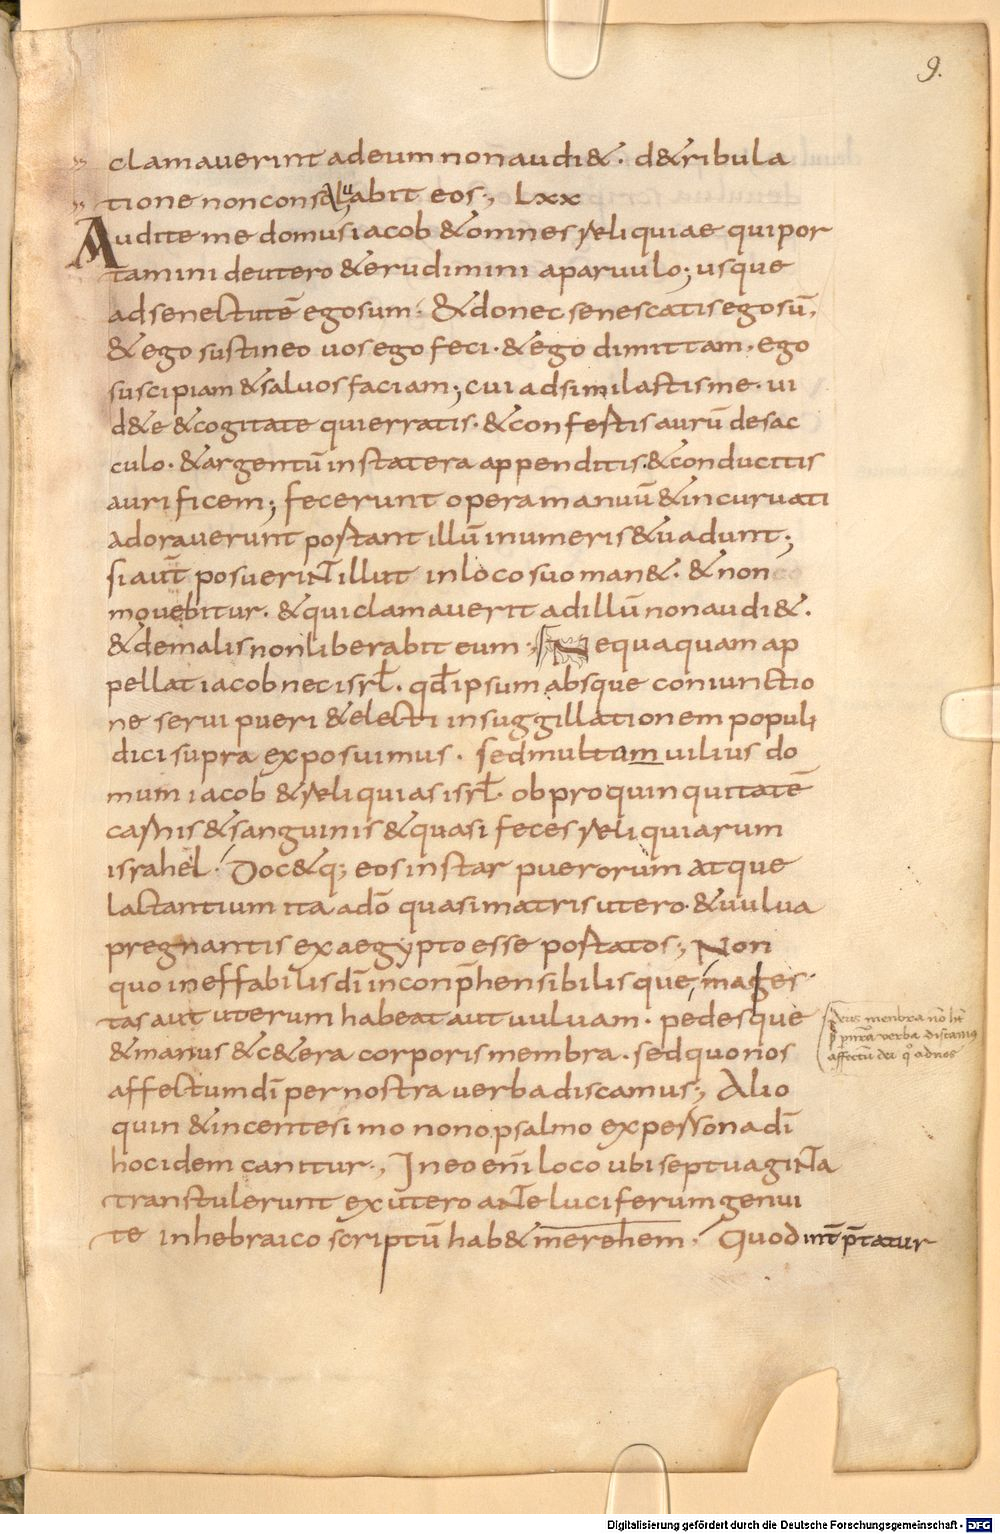 9.
clamaverint adeum non audi&. d&ribula
tione non consaluabit eos., Lxx
Audite me domus iacob &omnes reliquiae qui por
tamini deutero &erudimini aparvulo; usque
ad senectutē ego sum. &donec senescatis ego sū.
& ego sustineo uos ego feci. & ego dimittam. ego
suscipiam &saluos faciam; cui adsimilastis me. ui
d&e &cogitate qui erratis. &confertis aurū de sac
culo. &argentū in statera appenditis. &conducitis
aurificem; fecerunt opera manuū &incuruati
adoraverunt portant illū in umeris &uadunt;
si aut̄ posuerint illut in loco suo man&. & non
movebitur. &qui clamaverit ad illū non audi&.
&de malis non liberabit eum. Nequaquam ap
pellat iacob nec isrl̄. qd̄ ipsum absque coniunctio
ne servi pueri &electi in suggillationem populi
dici supra exposuimus. sed multum uilius do
mum iacob &reliquias isrl̄. ob proquinquitatē
carnis &sanguinis &quasi feces reliquiarum
israhel. Doc&q; eos instar puerorum atque
lactantium ita adō quasi matris utero. &uulua
pregnantis ex aegypto esse portatos; Non
quo ineffabilis dī inconp̄hensibilisque mages
tas aut uterum habeat aut uuluam. pedesque
&manus &c&era corporis membra. sed quo nos
affectum dī per nostra verba discamus; Alio
quin &in centesimo nono psalmo ex persona dī
hoc idem canitur., In eo enī loco ubi septuaginta
transtulerunt ex utero ante luciferum genui
te in hebraico scriptū hab& merehem. Quod int̄p̄tatur
Deus menbra nō ht̄
p̄ nr̄a verba discamus
affectū dei q° ad nos
Digitalisierung gefördert durch die Deutsche Forschungsgemeinschaft - DFG